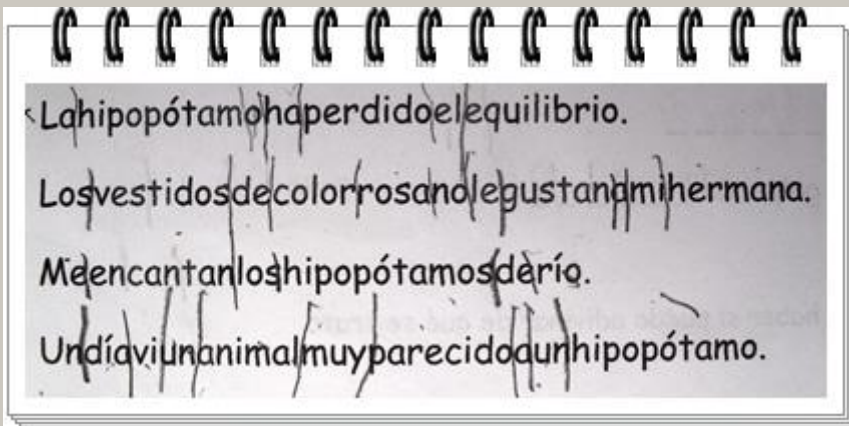 Lahipopótamohaperdidoelequilibrio.
Losvestidosdecolorrosanolegustanamihermana.
Meencantanloshipopótamosderío.
Undíaviunanimalmuyparecidoaunhipopótamo.